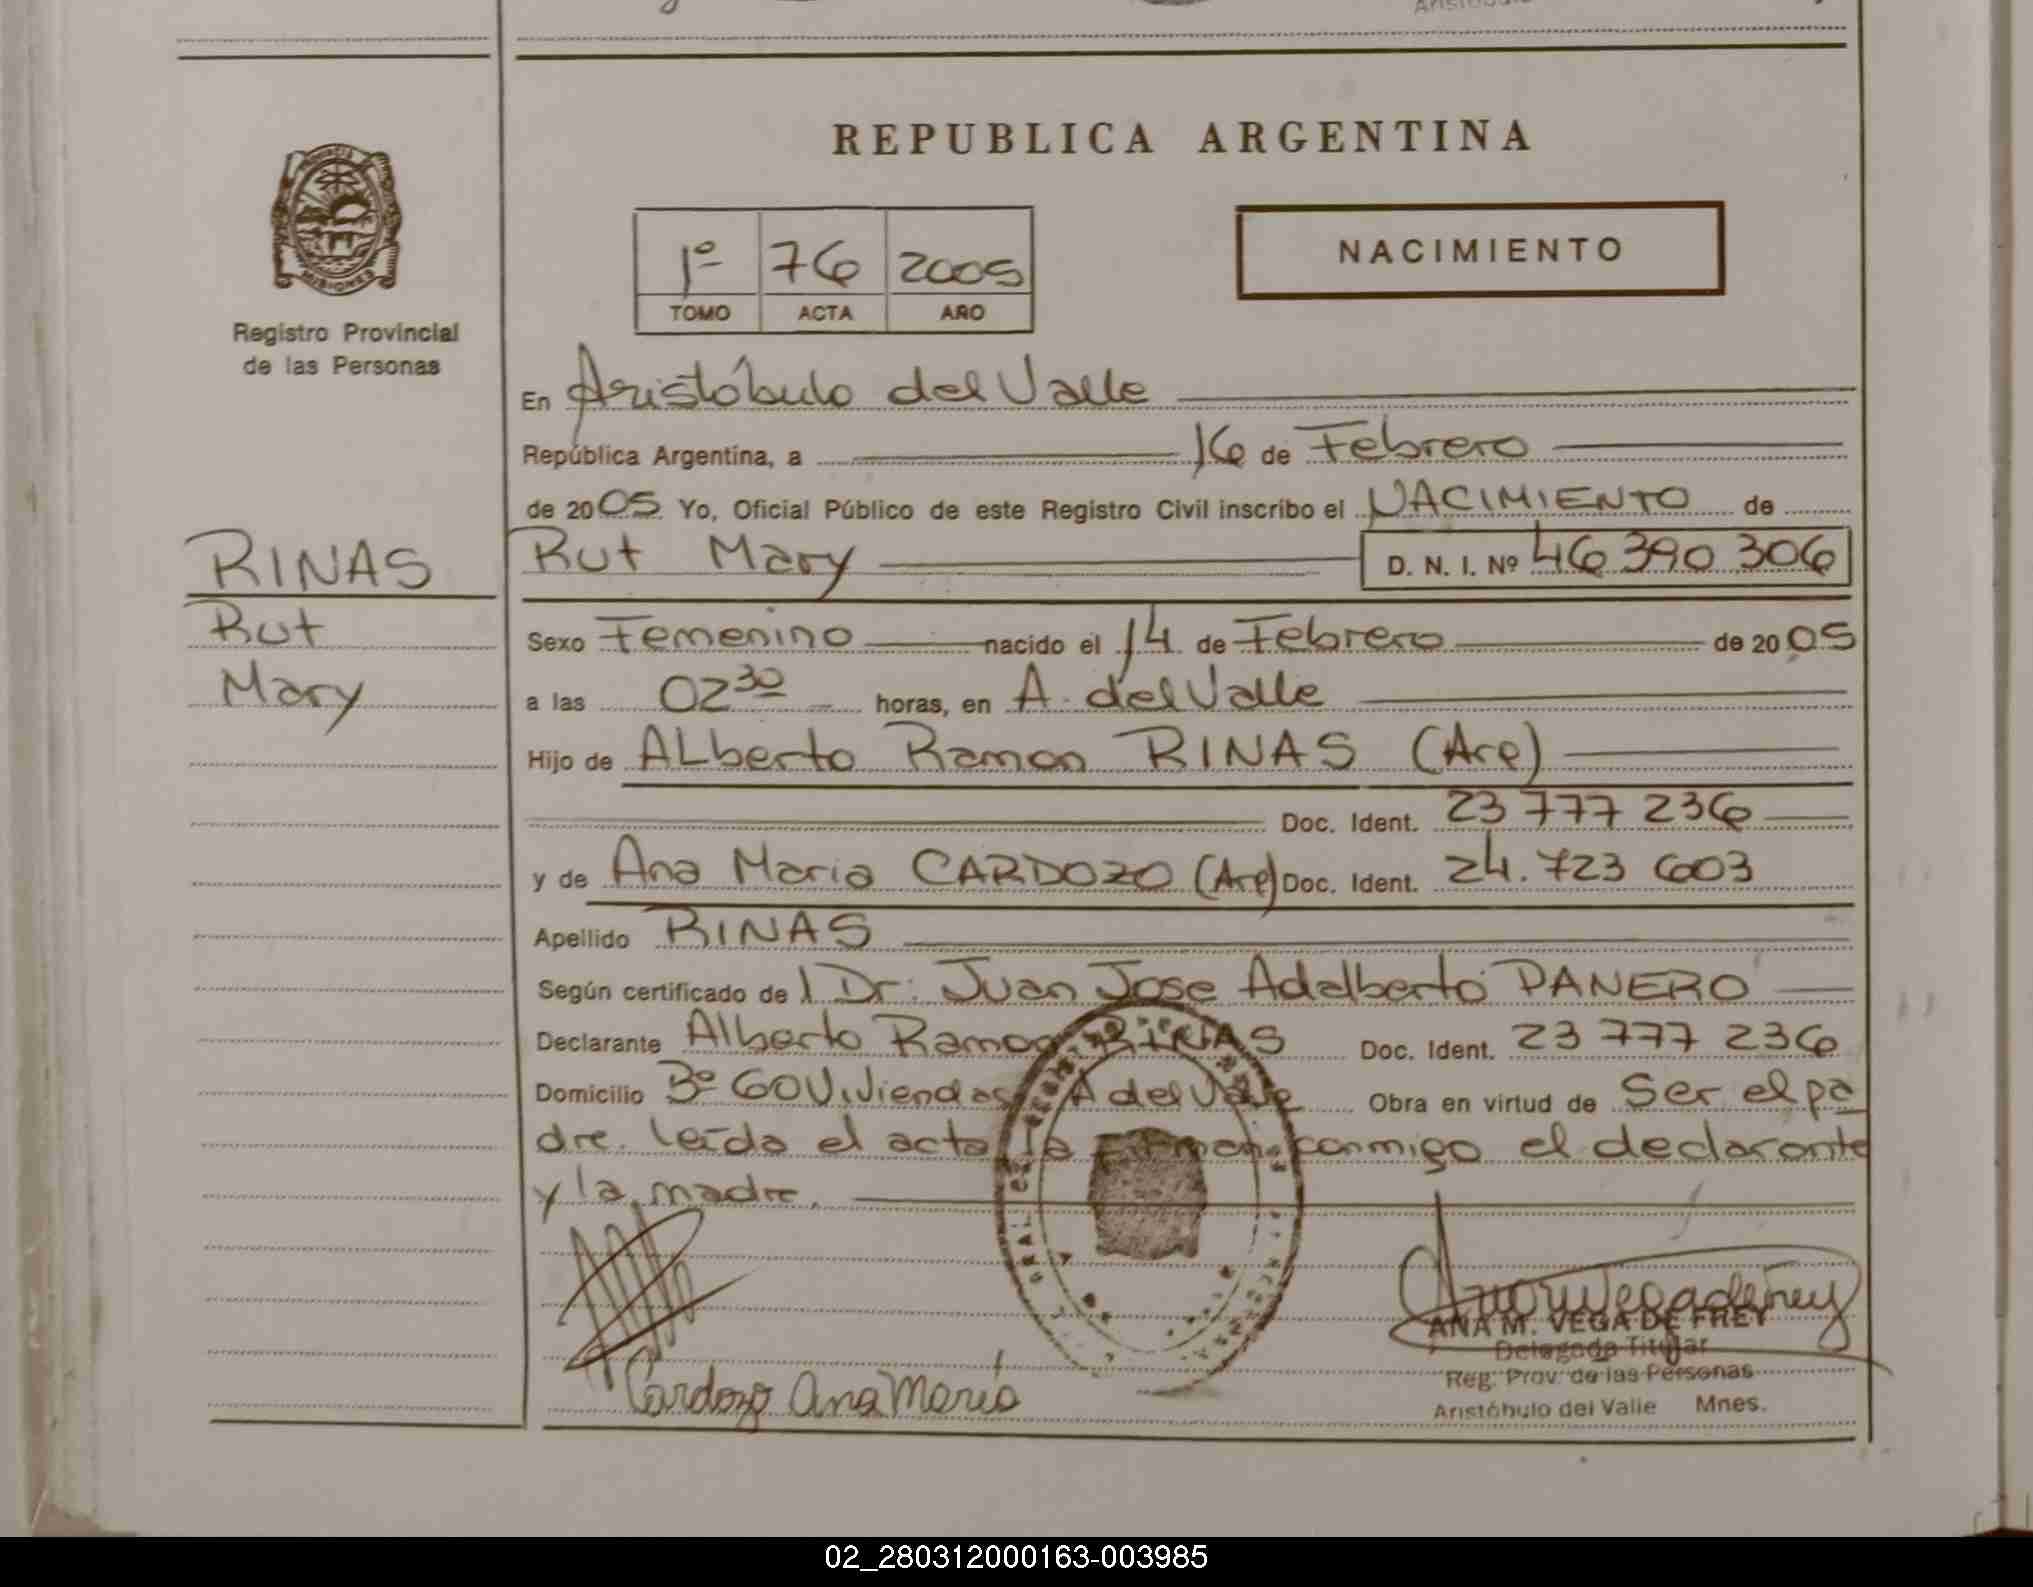 REPUBLICA ARGENTINA
1º 76 2005
TOMO ACTA AÑO
NACIMIENTO
PROVINCIA
MISIONES
Registro Provincial
de las Personas
RINAS
Rut
Mary
En Aristóbulo del Valle
República Argentina, a 16 de Febrero
de 2005 Yo, Oficial Público de este Registro Civil inscribo el NACIMIENTO de
Rut Mary D. N. I. Nº 46 390 306
Sexo Femenino nacido el 14 de Febrero de 2005
a las 02 30 horas, en A. del Valle
Hijo de ALberto Ramon RINAS (Arg)
Doc. Ident. 23 777 236
y de Ana Maria CARDOZO (Arg) Doc. Ident. 24.723 603
Apellido RINAS
Según certificado de l Dr: Juan Jose Adalberto PANERO
Declarante Alberto Ramon RINAS Doc. Ident. 23 777 236
Domicilio 3º 60 Viviendas A del Valle Obra en virtud de Ser el pa
dre. leida el acta la firman conmigo el declarante
y la madre.
Cardozo Ana Maria
ANA M. VEGA DE FREY
Delegada Titular
Reg. Prov. de las Personas
Aristóbulo del Valle Mnes.
02_280312000163-003985